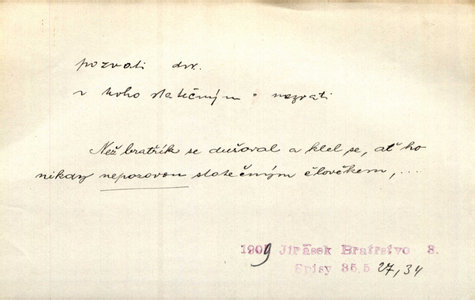 pozvati dok.
v koho statečným : nazvati
Než bratřík se dušoval a klel se, ať ho
nikdy nepozovou statečným člověkem, ...
1909 Jirásek Bratrstvo 3.
Spisy 35,5 27,34